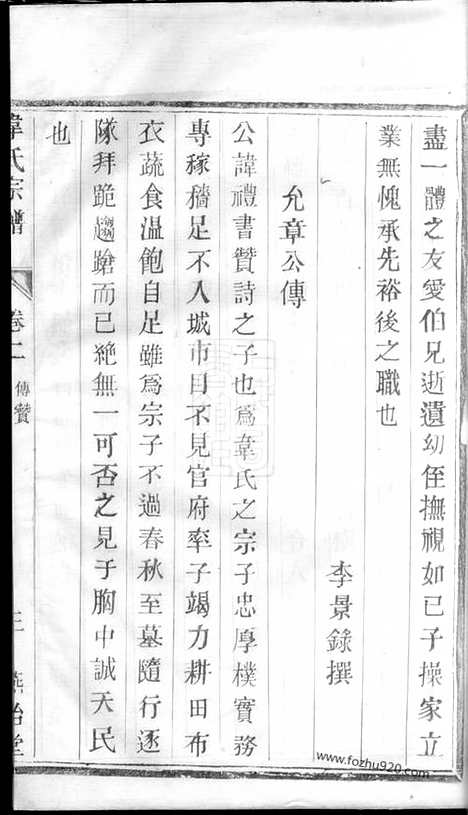 盡一體之友愛伯兄逝遺幼侄撫視如已子操家立
業無愧承先裕後之職也
李景錄撰
允章公傳
公諱禮書贊詩之子也爲韋氏之宗子忠厚樸實務
專稼穡足不入城市目不見官府率子竭力耕田布
衣蔬食溫飽自足雖爲宗子不過春秋至墓隨行逐
隊拜跪趨蹌而已絶無一可否之見于胸中誠天民
也
韋氏宗譜
卷二
傳贊
三
燕怡堂
www.fozhu920.com